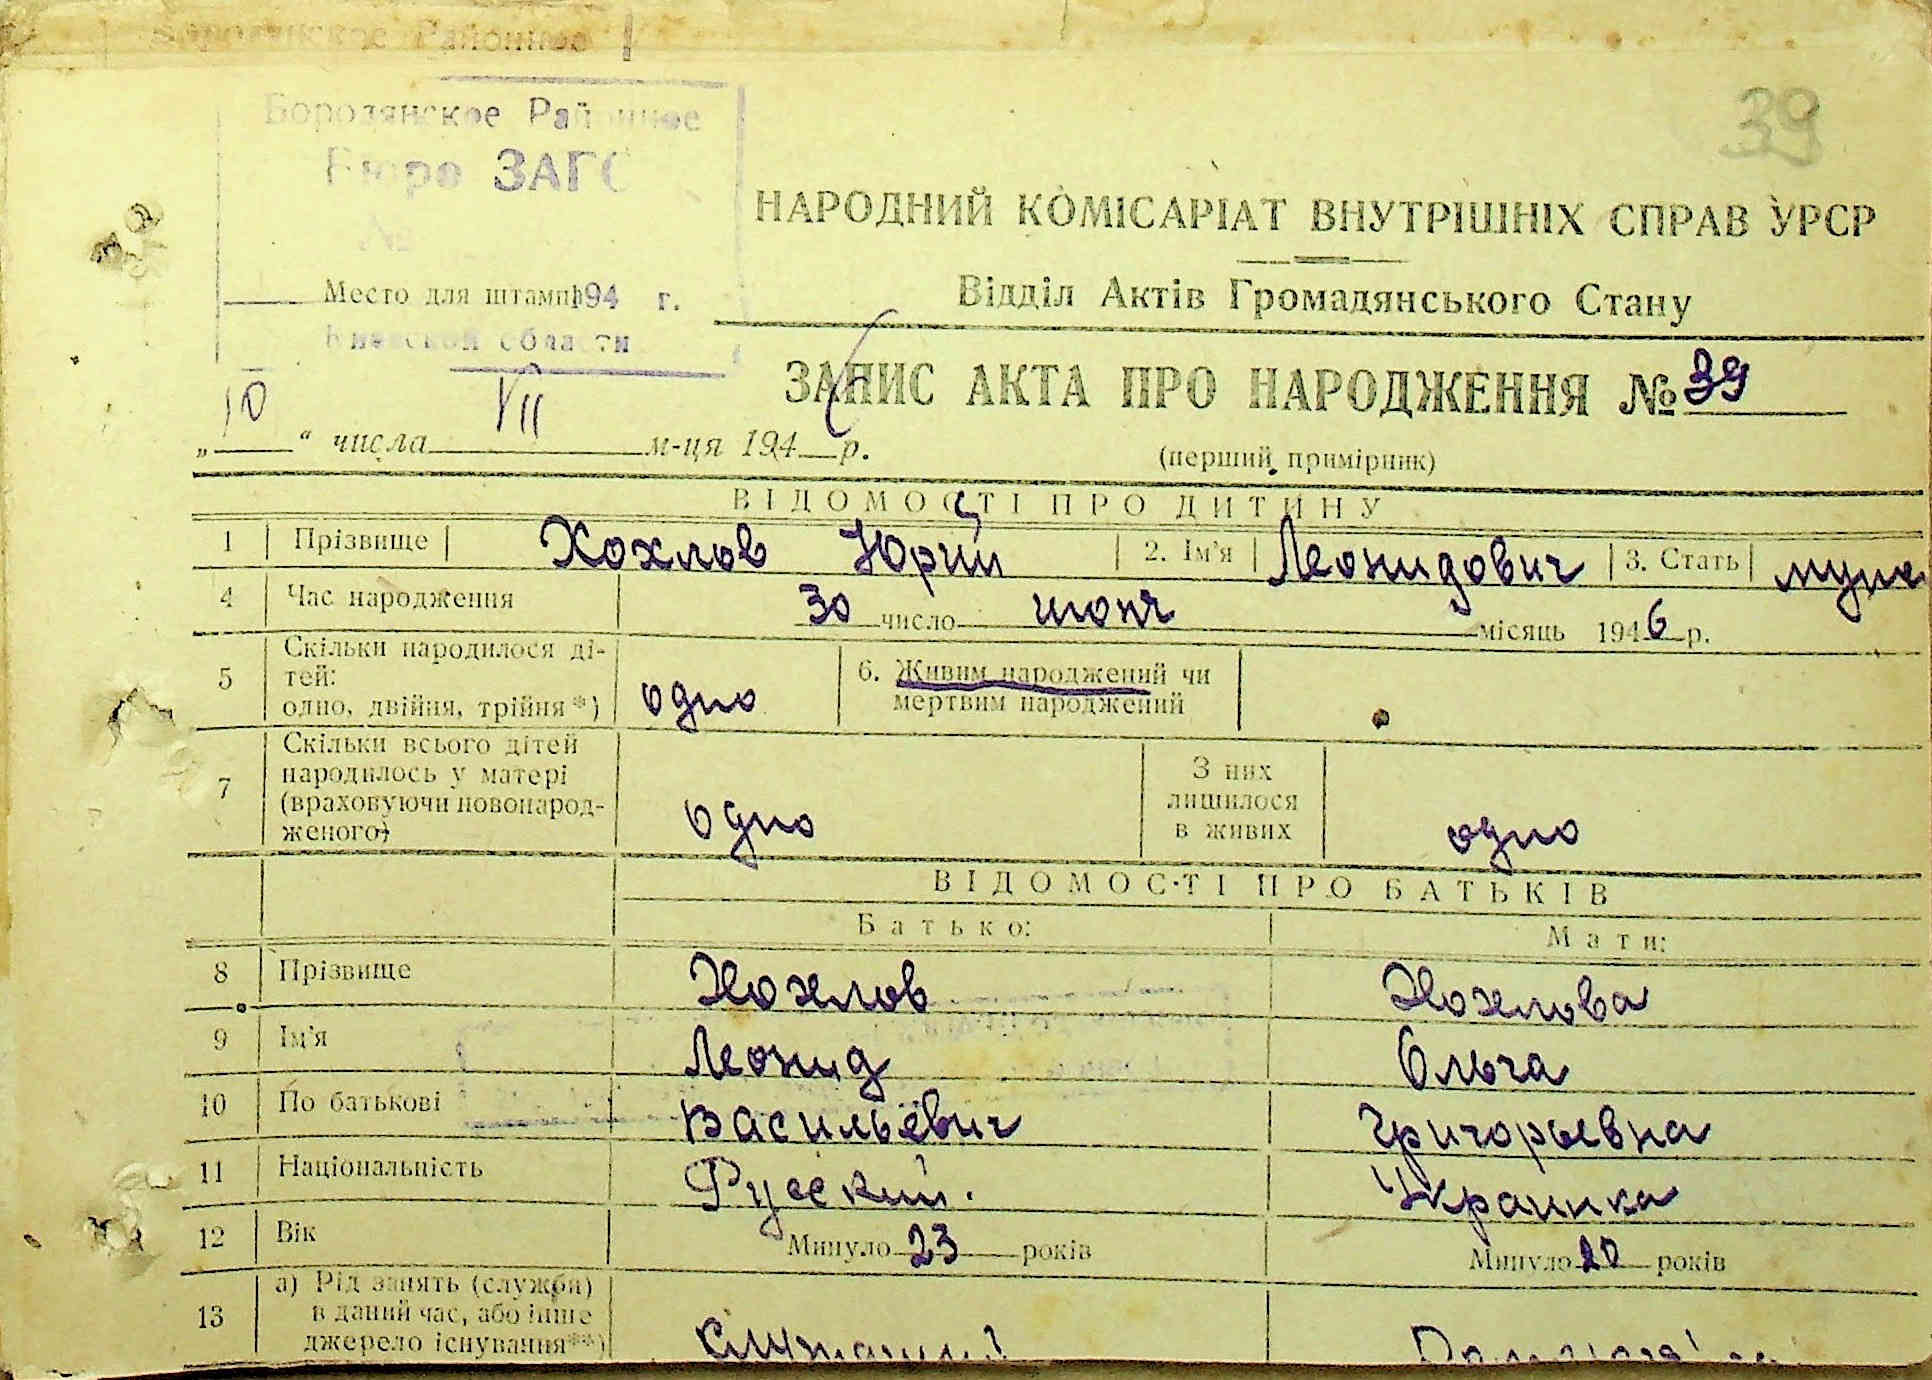 Бородянское Районное
39
Бородянское Районное
Бюро ЗАГС
№
НАРОДНИЙ КОМІСАРІАТ ВНУТРІШНІХ СПРАВ УРСР
Место для штампа 194 г.
Відділ Актів Громадянського Стану
Киевской области
ЗАПИС АКТА ПРО НАРОДЖЕННЯ № 39
„10“ числа VII м-ця 1946 р.
(перший примірник)
ВІДОМОСТІ ПРО ДИТИНУ
1 Прізвище Хохлов Юрий 2. Ім'я Леонидович 3. Стать
4 Час народження 30 число июня місяць 1946 р.
5 Скільки народилося ді-
тей:
одно, двійня, трійня*) одно 6. Живим народжений чи
мертвим народжений
7 Скільки всього дітей
народилось у матері
(враховуючи новонарод-
женого) одно З них
лишилося
в живих одно
ВІДОМОСТІ ПРО БАТЬКІВ
Батько: Мати:
8 Прізвище Хохлов Хохлова
9 Ім'я Леонид Ольга
10 По батькові Васильевич Григорьевна
11 Національність Русский. Украинка
12 Вік Минуло 23 років Минуло 20 років
13 а) Рід занять (служби)
в даний час, або інше
джерело існування**) Служащий